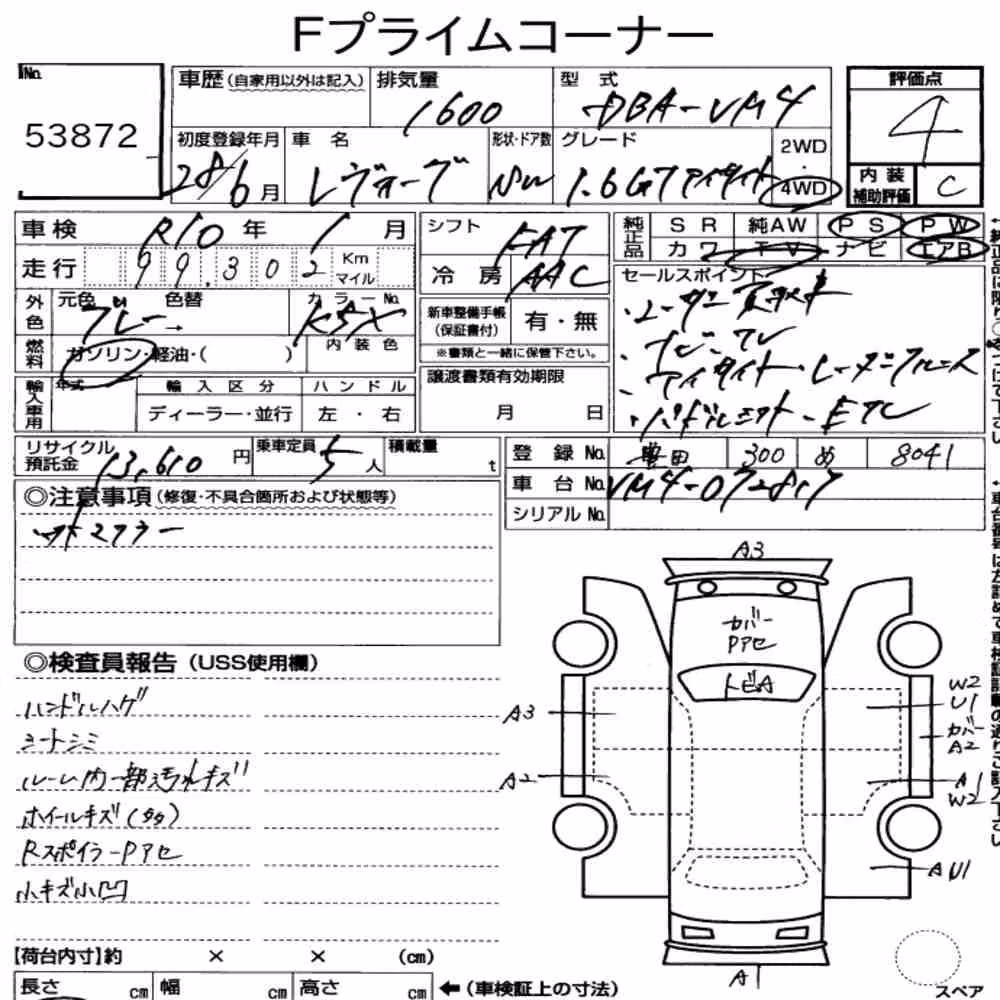 Fプライムコーナー
No.
53872
車歴(自家用以外は記入)
排気量
1600
型式
DBA-VM4
評価点
4
内装補助評価
C
初度登録年月
28/6月
車名
レヴォーグ
形状・ドア数
5W
グレード
1.6GTアイサイト
2WD
4WD
車検
R10年1月
走行
99,302
Km
マイル
シフト
FAT
冷房
AAC
純正品
SR
純AW
PS
PW
カワ
TV
ナビ
エアB
外色
元色
グレー
色替
→
カラーNo.
K5X
燃料
ガソリン・軽油・( )
内装色
新車整備手帳(保証書付)
有・無
※書類と一緒に保管下さい。
セールスポイント
・ユーザー買取車
・ナビ・TV
・アイサイト・レーダークルーズ
・パドルシフト・ETC
輸入車用
年式
輸入区分
ディーラー・並行
ハンドル
左・右
譲渡書類有効期限
月 日
リサイクル預託金
13,610円
乗車定員
5人
積載量
t
登録No.
豊田 300 め 8041
車台No.
VM4-072817
シリアルNo.
◎注意事項(修復・不具合箇所および状態等)
社外マフラー
◎検査員報告(USS使用欄)
ハンドルハゲ
シートシミ
ルーム内一部汚れキズ
ホイールキズ(多々)
RスポイラーPアセ
小キズ小凹
A3
カバー
Pアセ
トビA
A3
A2
W2
U1
カバー
A2
A1
W2
AU1
A1
スペア
【荷台内寸】約 × × (cm)
長さ cm
幅 cm
高さ cm
←(車検証上の寸法)